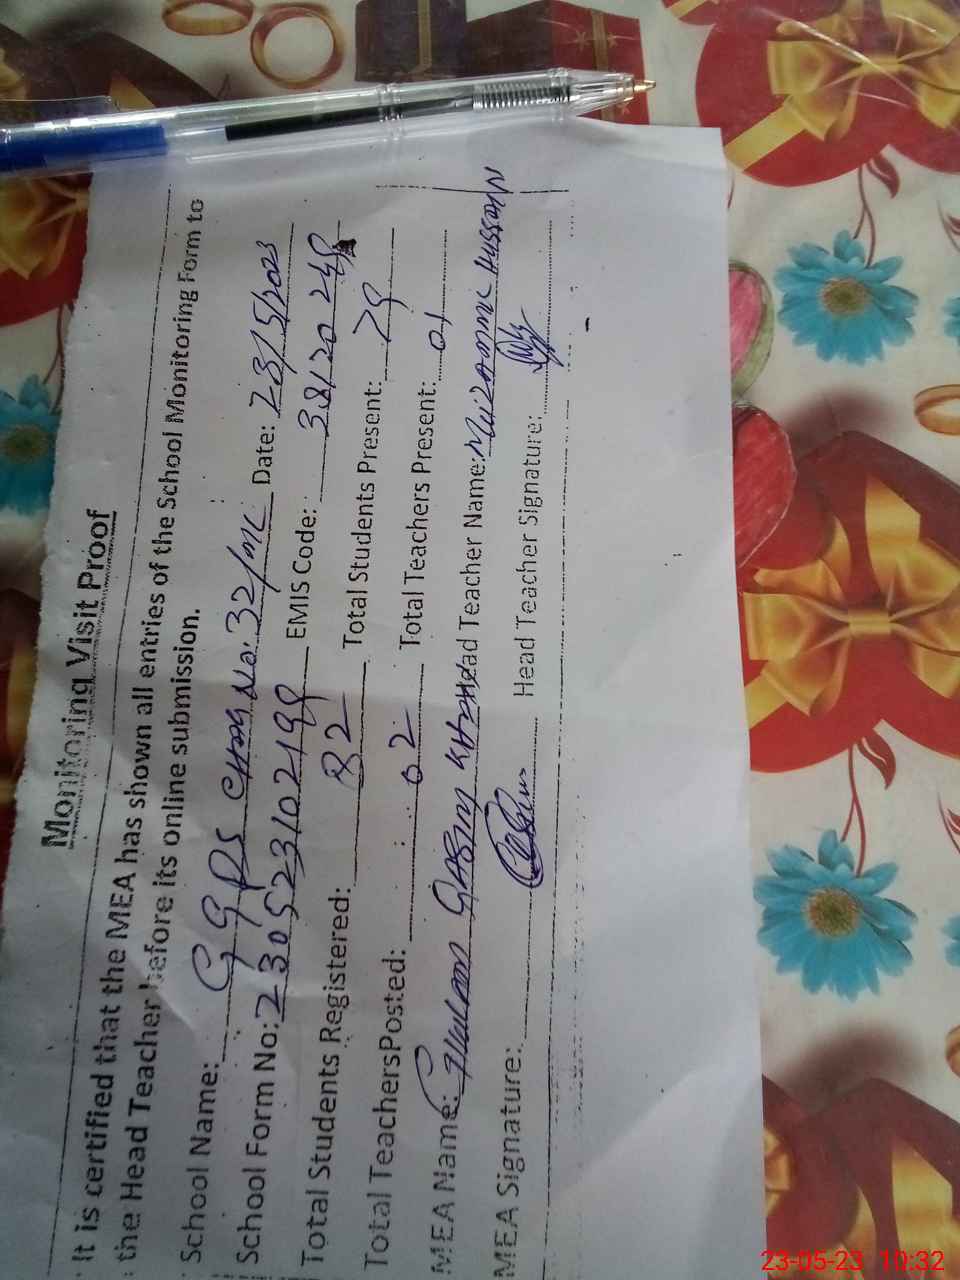 Monitoring Visit Proof
It is certified that the MEA has shown all entries of the School Monitoring Form to
the Head Teacher before its online submission.
School Name: GGPS CHAK No. 32/MC Date: 23/5/2023
School Form No: 230523102199 EMIS Code: 38120248
Total Students Registered: 82 Total Students Present: 79
Total TeachersPosted: 02 Total Teachers Present: 01
MEA Name: Ghulam Qasim KHAN Head Teacher Name: Muzammil Hussain
MEA Signature: Head Teacher Signature:
23-05-23 10:32